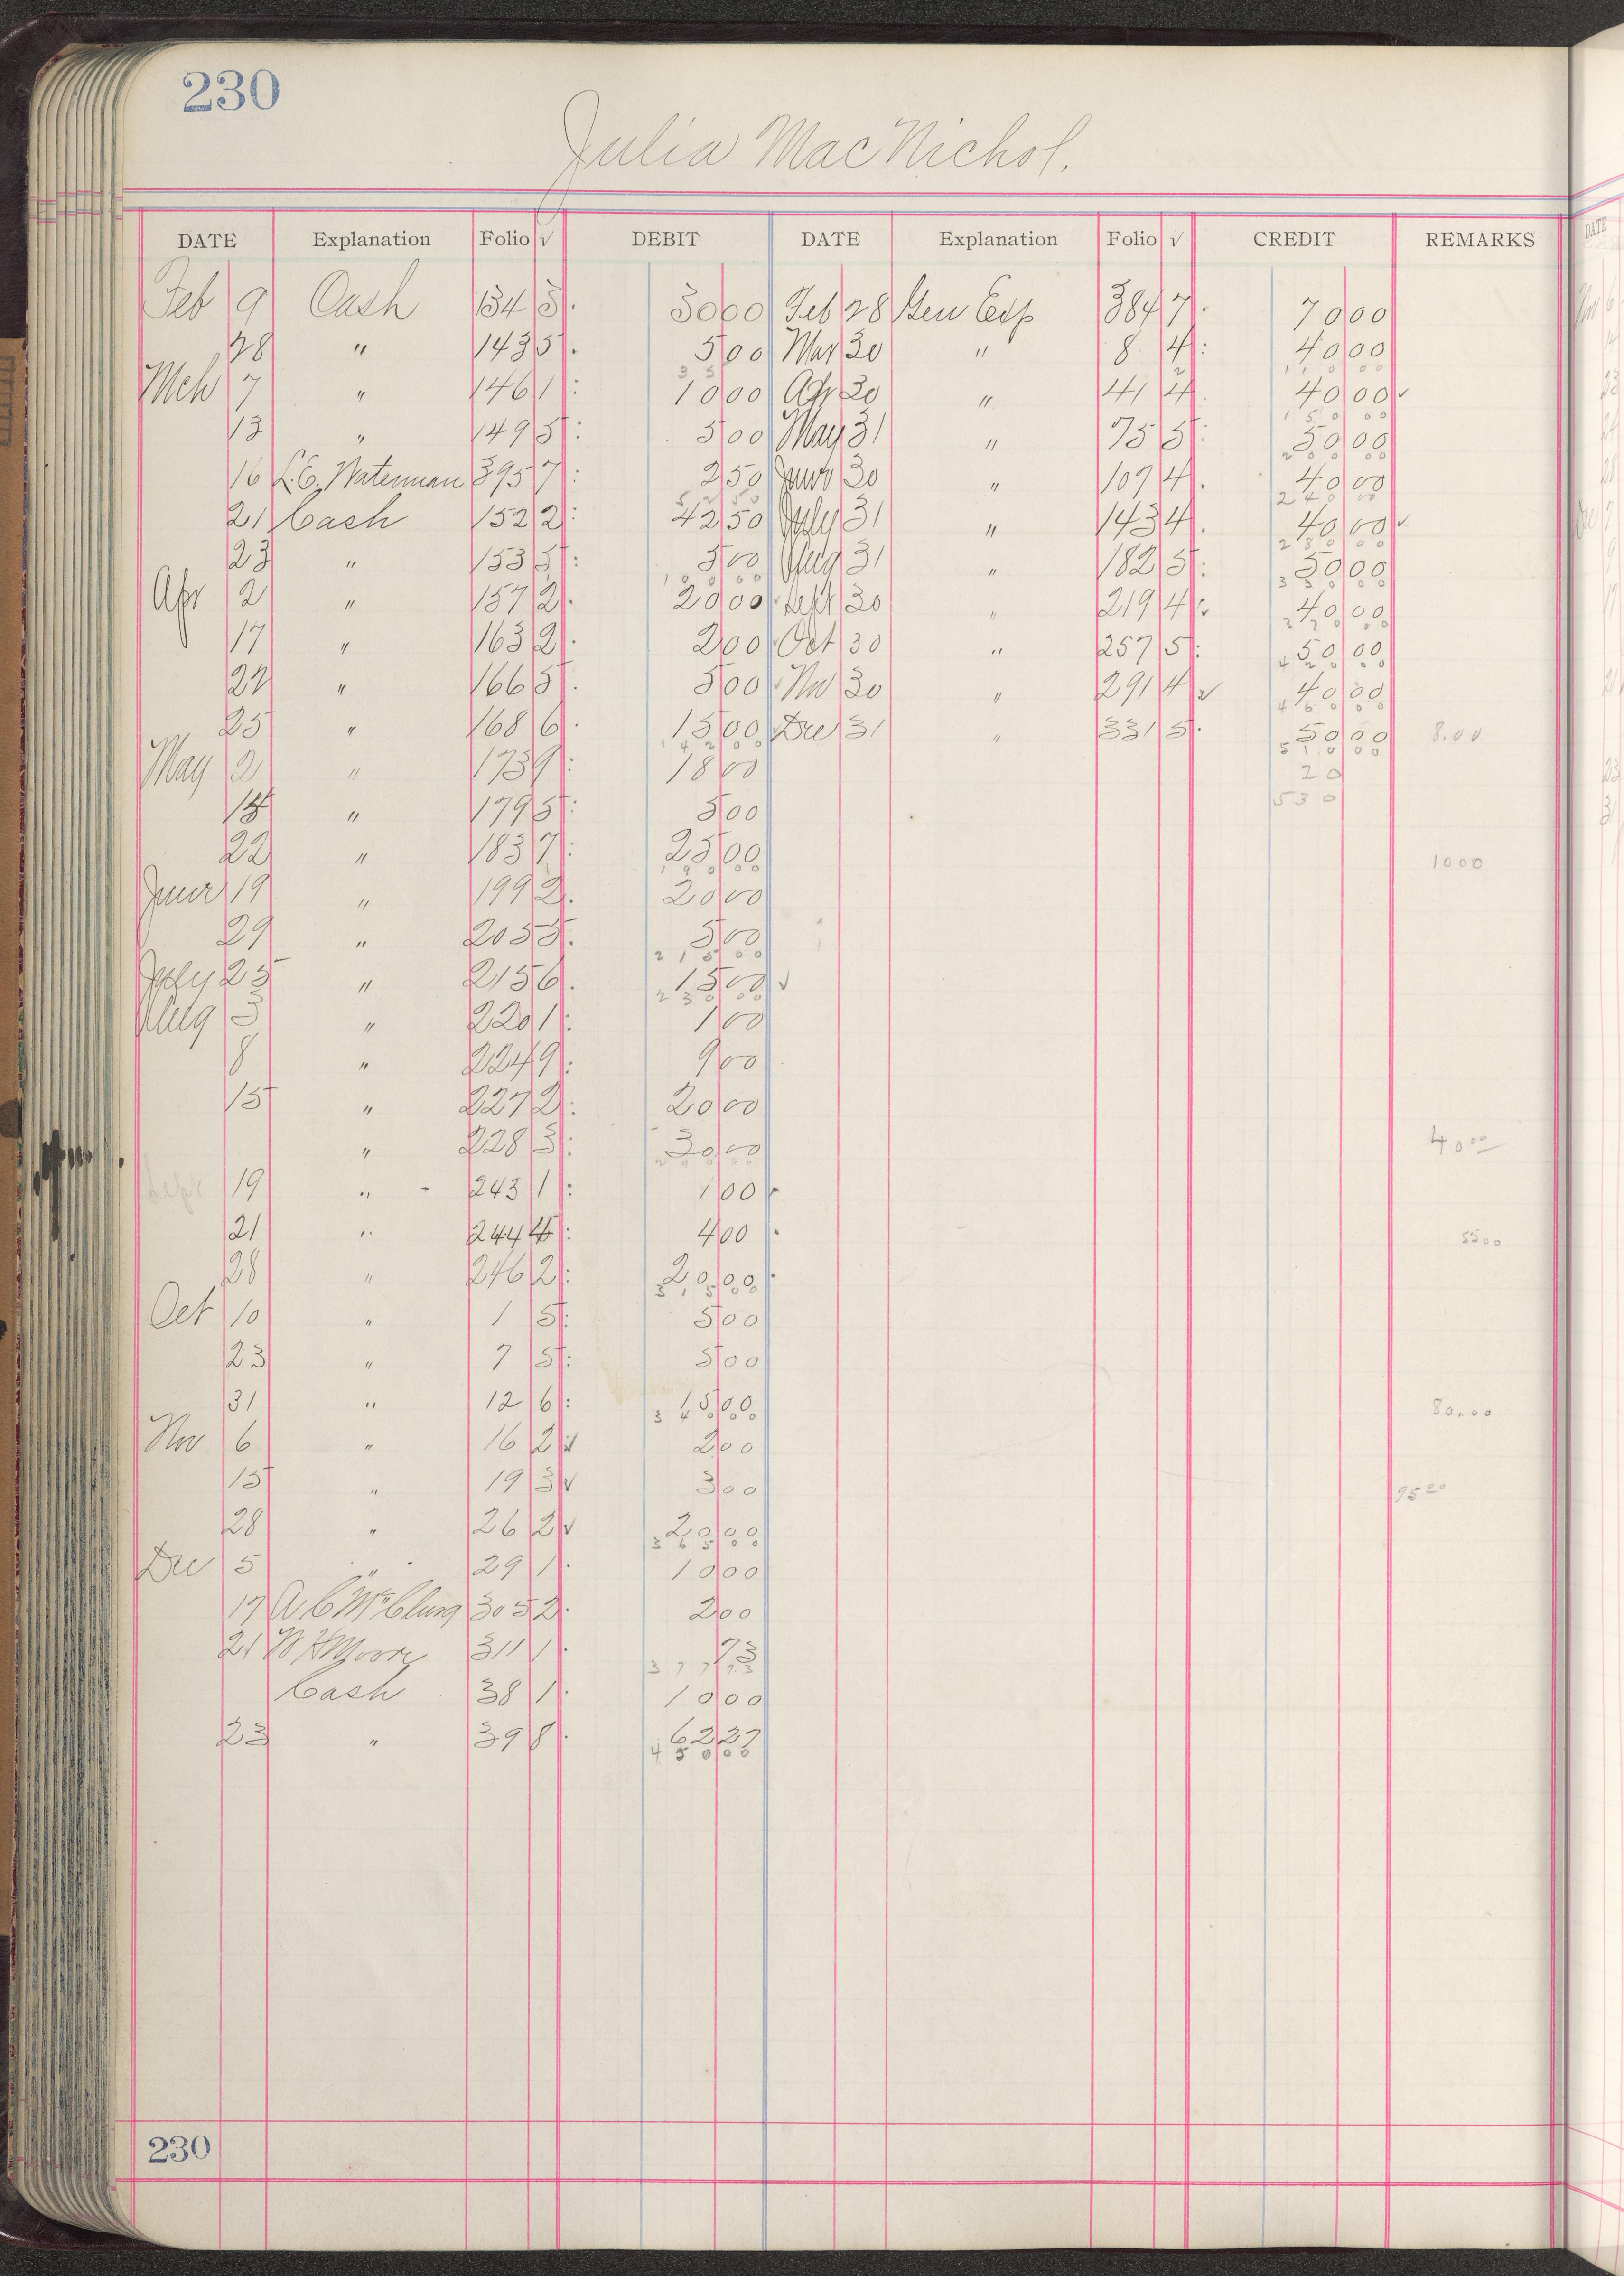 230
Julia MacNichol.
DATE Explanation Folio √ DEBIT DATE Explanation Folio √ CREDIT REMARKS
Feb 9 Cash 134 3 30 00 Feb 28 Gen Exp 384 7 70 00
28 " 143 5 5 00 Mar 30 " 8 4 40 00
35
Mch 7 " 146 1 10 00 Apr 30 " 41 4 40 00 ✓
13 " 149 5 5 00 May 31 " 75 5 50 00
16 L.E. Waterman 395 7 2 50 June 30 " 107 4 40 00
21 Cash 152 2 42 50 July 31 " 143 4 40 00 ✓
23 " 153 5 5 00 Aug 31 " 182 5 50 00
Apr 2 " 157 2 20 00 Sept 30 " 219 4 40 00
17 " 163 2 2 00 Oct 30 " 257 5 50 00
22 " 166 5 5 00 Nov 30 " 291 4 ✓ 40 00
25 " 168 6 15 00 Dec 31 " 331 5 50 00 8.00
142 00 510 00
May 2 " 173 9 18 00 20
18 " 179 5 5 00 530
22 " 183 7 25 00 1000
190 00
June 19 " 199 2 20 00
29 " 205 5 5 00
215 00
July 25 " 215 6 15 00 ✓
230 00
Aug 3 " 220 1 1 00
8 " 224 9 9 00
15 " 227 2 20 00
" 228 3 30 00 40 00
Sept 19 " 243 1 1 00
21 " 244 4 4 00 55 00
28 " 246 2 20 00
315 00
Oct 10 " 1 5 5 00
23 " 7 5 5 00
31 " 12 6 15 00 80.00
340 00
Nov 6 " 16 2 ✓ 2 00
15 " 19 3 ✓ 3 00 95 00
28 " 26 2 ✓ 20 00
365 00
Dec 5 " 29 1 10 00
17 A C McClurg 305 2 2 00
21 W H Moore 311 1 73
377 73
Cash 38 1 10 00
23 " 39 8 62 27
450 00
230